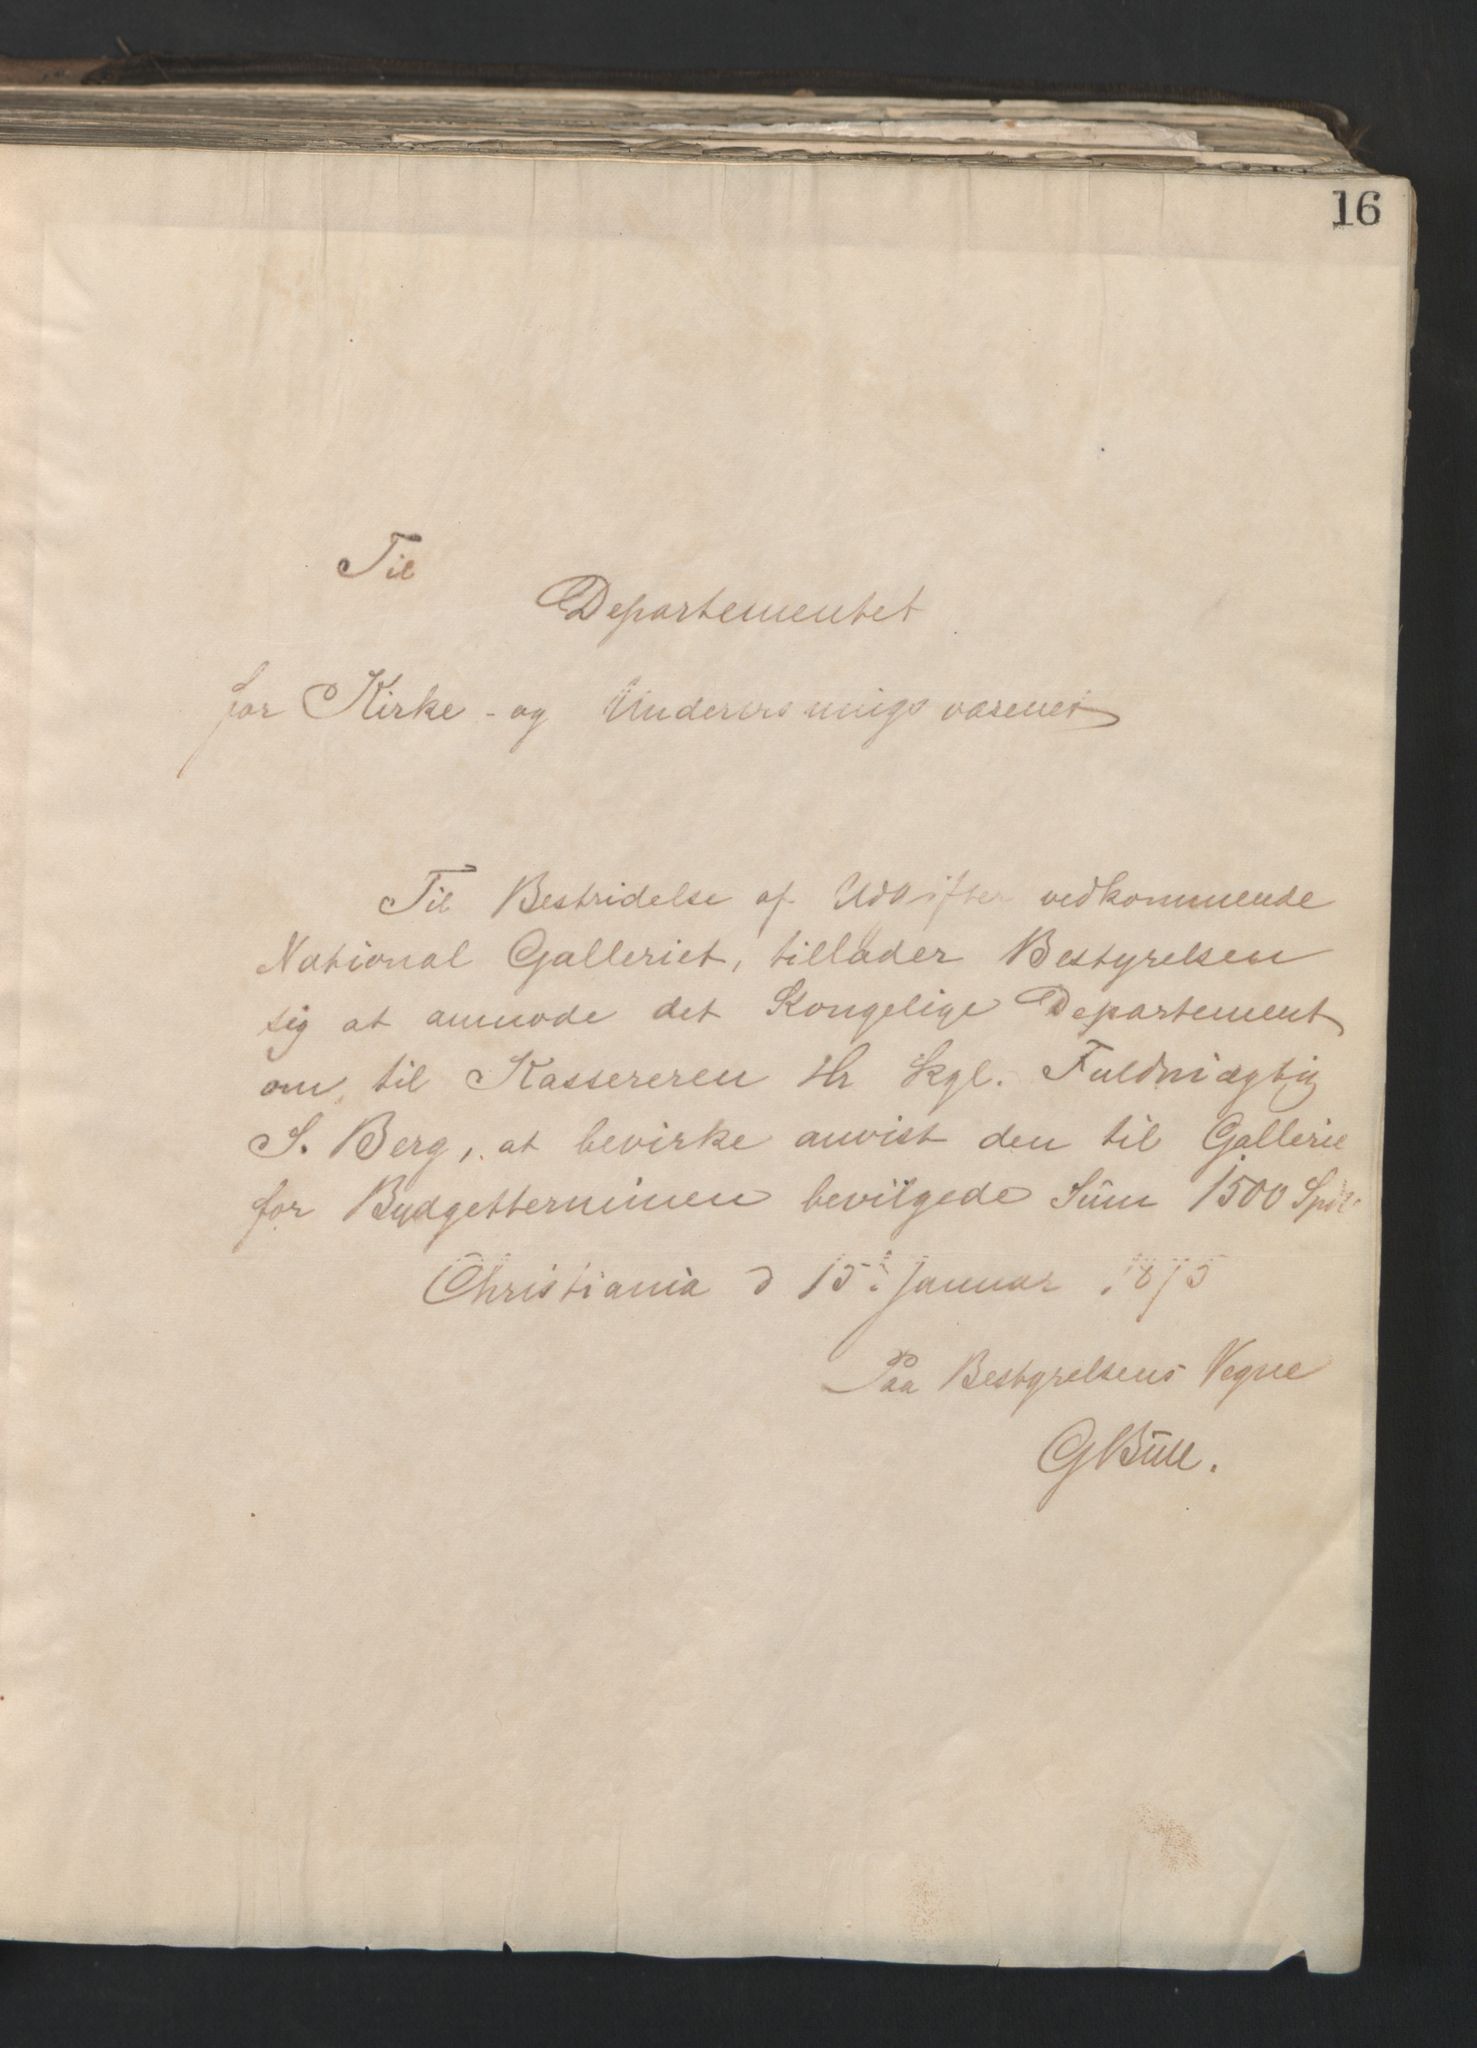 16
Til
Departementet
for Kirke- og Undervisningsvæsenet
Til Bestridelse af Udgifter vedkommende
National Galleriet, tillader Bestyrelsen
sig at anmode det Kongelige Departement
om, til Kassereren Hr kgl. Fuldmægtig
S. Berg, at bevirke anvist den til Galleriet
for Budgetterminen bevilgede Sum 1500 Spdlr
Christiania d 15de Januar 1875
Paa Bestyrelsens Vegne
GBull.